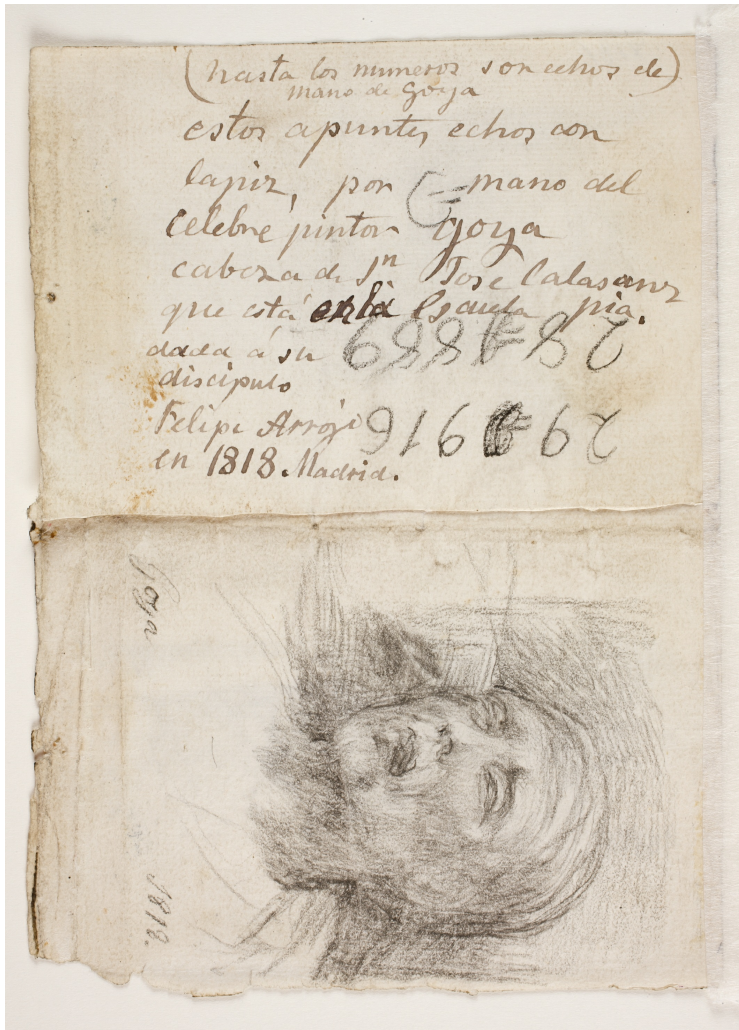 (hasta los numeros son echos de)
mano de Goya
estos apuntes echos con
lapiz, por mano del
celebre pintor Goya
cabeza de Sn Jose Calasanz
que está en la Escuela pia.
dada á su
discipulo
Felipe Arrojo
en 1818. Madrid.
Goya
1818.